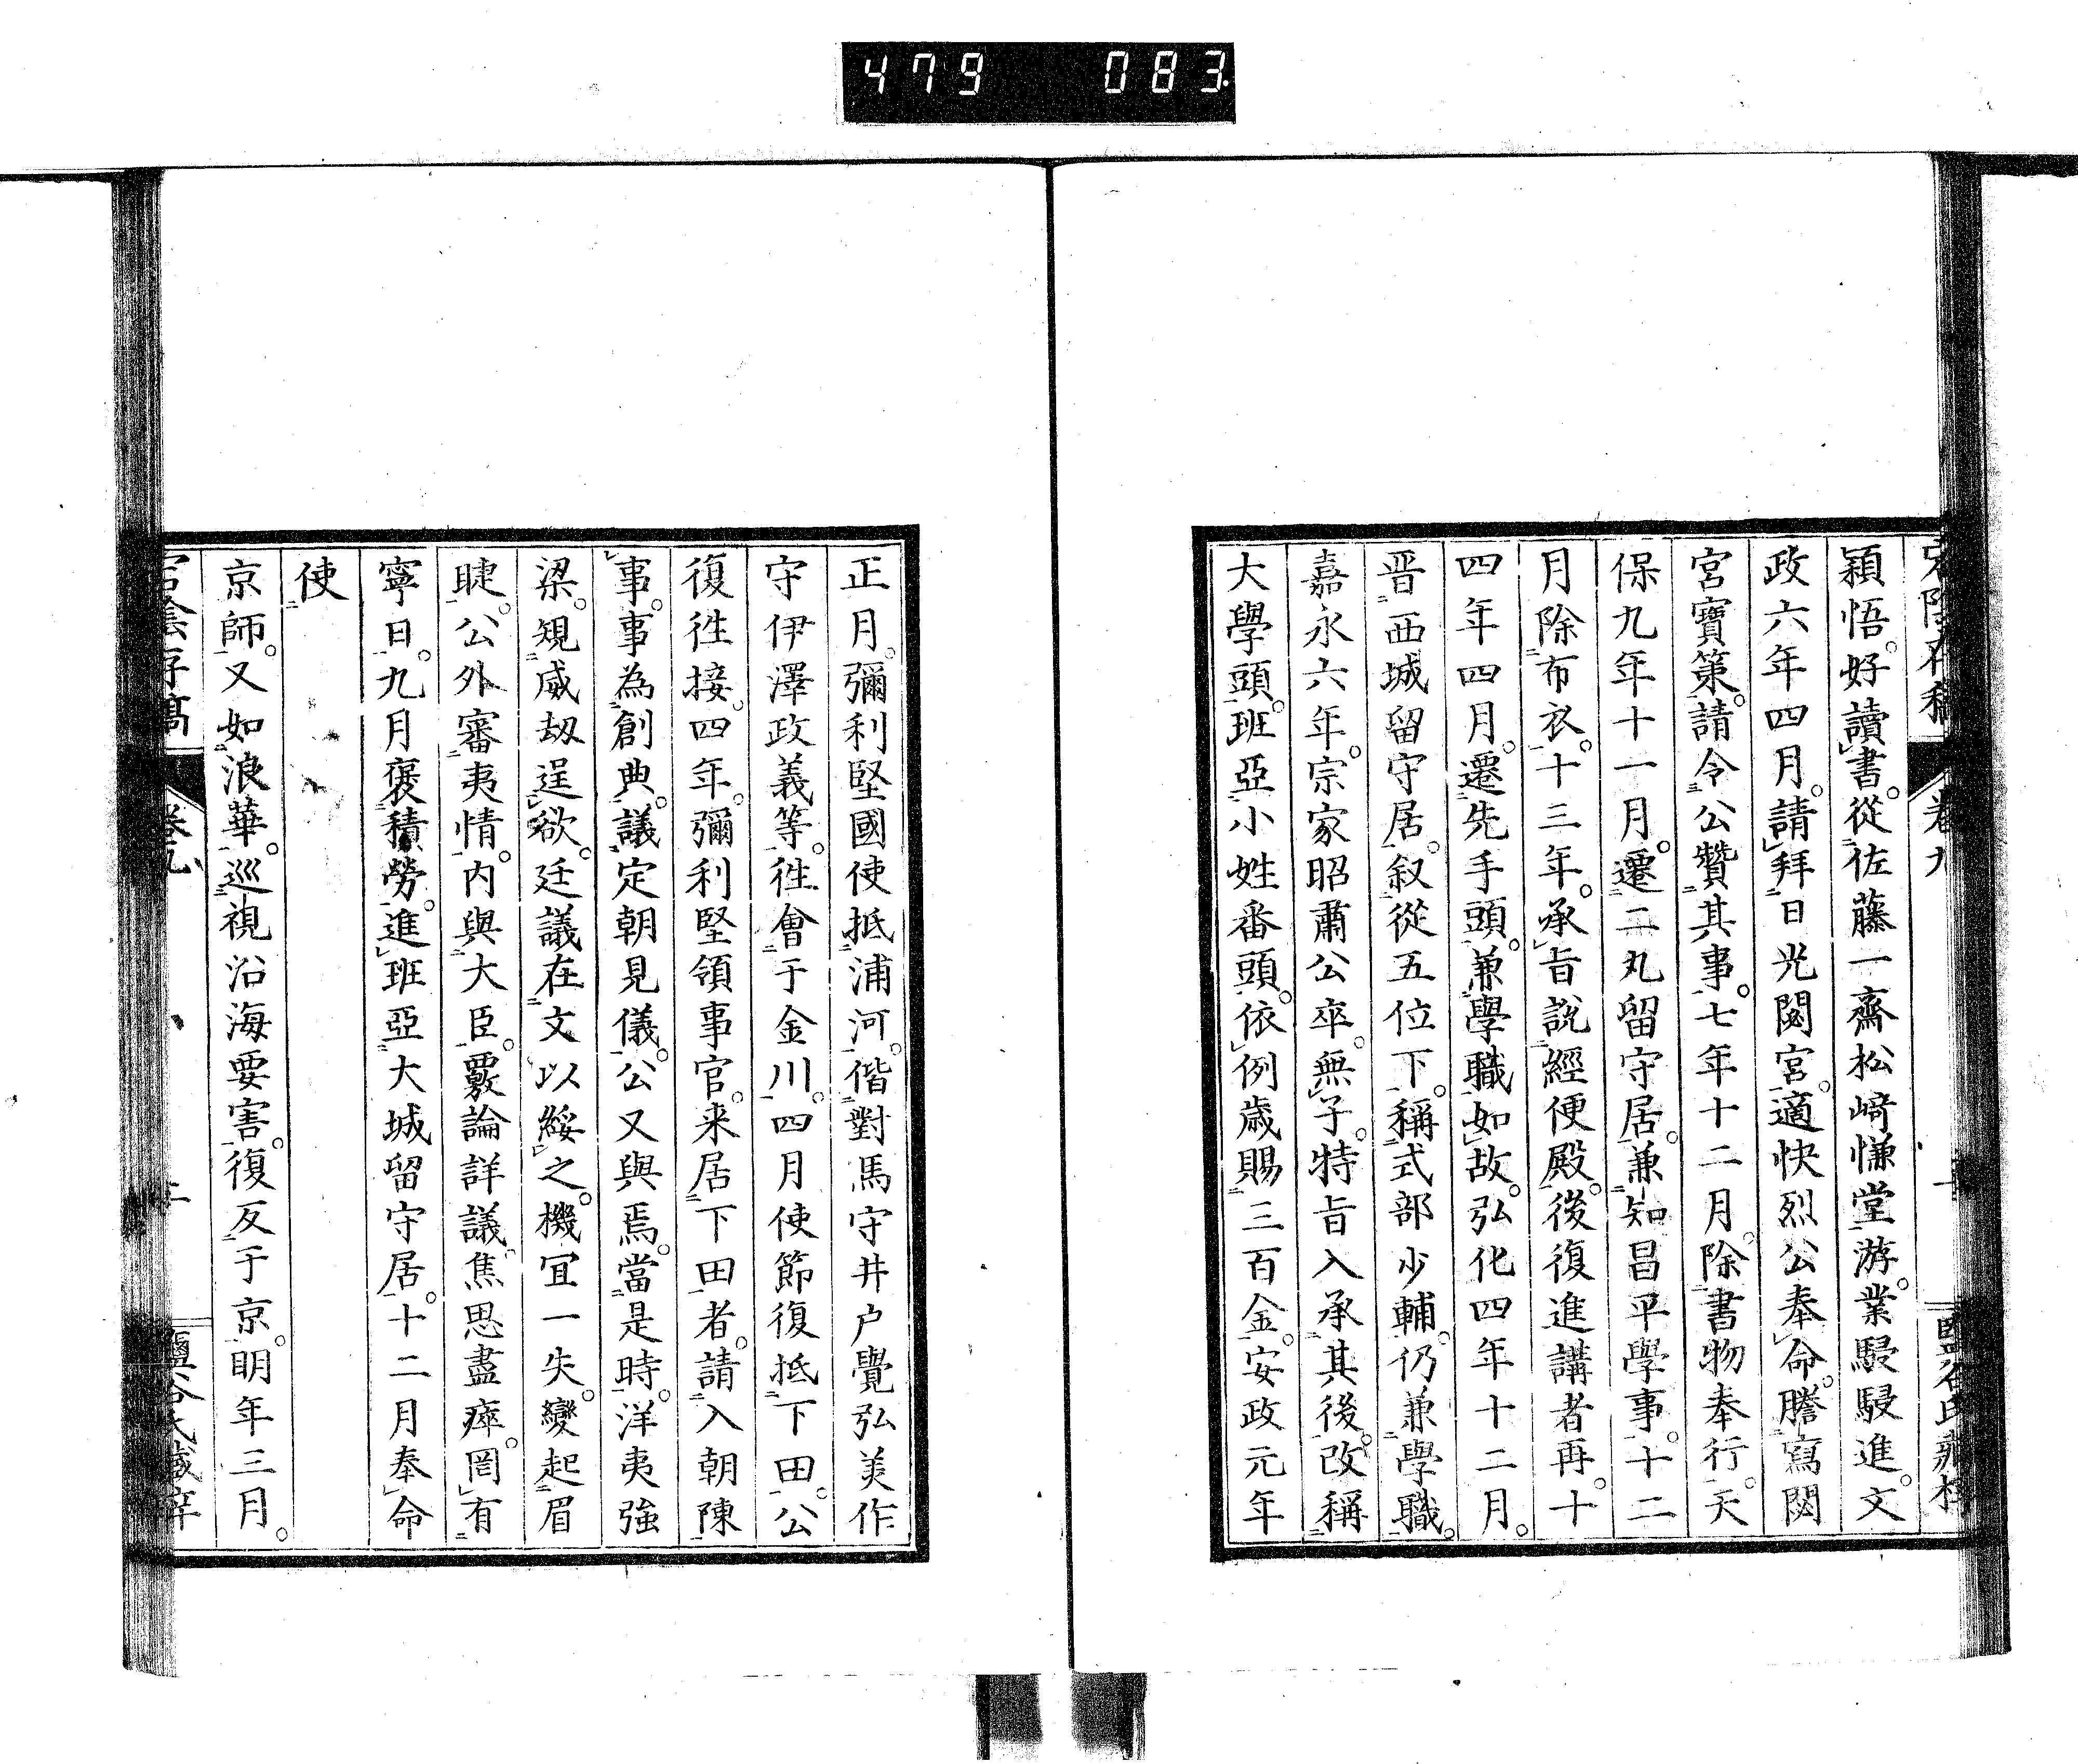 479 083
穎悟。好讀書。從佐藤一齋松崎慊堂游。業駸駸進。文
政六年四月。請拜日光閟宮。適快烈公奉命。謄寫閟
宮寶策。請令公贊其事。七年十二月。除書物奉行。天
保九年十一月。遷二丸留守居。兼知昌平學事。十二
月除布衣。十三年。承旨說經便殿。後復進講者再。十
四年四月。遷先手頭。兼學職如故。弘化四年十二月。
晋西城留守居。叙從五位下。稱式部少輔。仍兼學職。
嘉永六年。宗家昭肅公卒。無子。特旨入承其後。改稱
大學頭。班亞小姓番頭。依例歲賜三百金。安政元年
正月。彌利堅國使抵浦河。偕對馬守井戶覺弘美作
守伊澤政義等。往會于金川。四月使節復抵下田。公
復往接。四年。彌利堅領事官。来居下田者。請入朝陳
事。事為創典。議定朝見儀。公又與焉。當是時。洋夷強
梁。覙威劫逞欲。廷議在文以綏之。機宜一失。變起眉
睫。公外審夷情。內與大臣。覈論詳議。焦思盡瘁。罔有
寧日。九月褒積勞。進班亞大城留守居。十二月奉命
使
京師。又如浪華。巡視沿海要害。復反于京。明年三月。
宕陰存稿 卷九